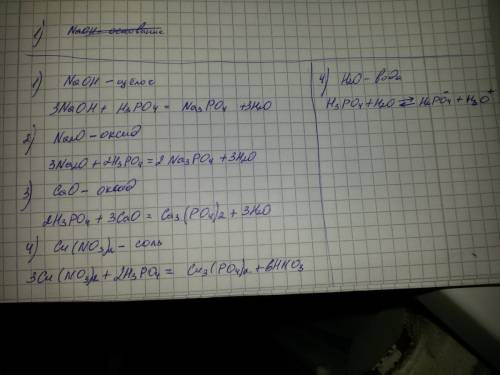 1) NaOH - основание
1) NaOH - щелос
3NaOH + H3PO4 = Na3PO4 + 3H2O
2) Na2O - оксид
3Na2O + 2H3PO4 = 2Na3PO4 + 3H2O
3) CaO - оксид
2H3PO4 + 3CaO = Ca3(PO4)2 + 3H2O
4) Cu(NO3)2 - соль
3Cu(NO3)2 + 2H3PO4 = Cu3(PO4)2 + 6HNO3
4) H2O - вода
H3PO4 + H2O ⇄ H2PO4⁻ + H3O⁺